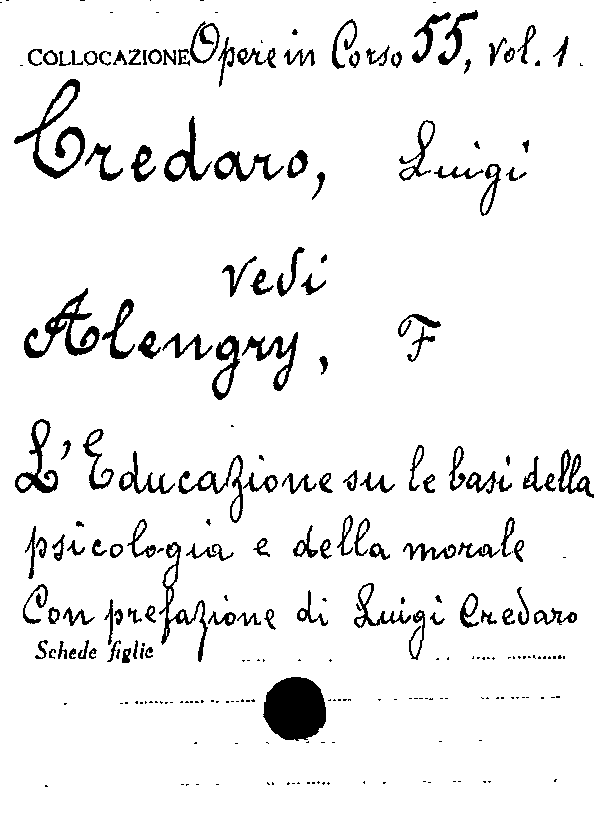 COLLOCAZIONE Opere in Corso 55, vol. 1.
Credaro, Luigi
vedi
Alengry, F
L'Educazione su le basi della
psicologia e della morale
Con prefazione di Luigi Credaro
Schede figlie